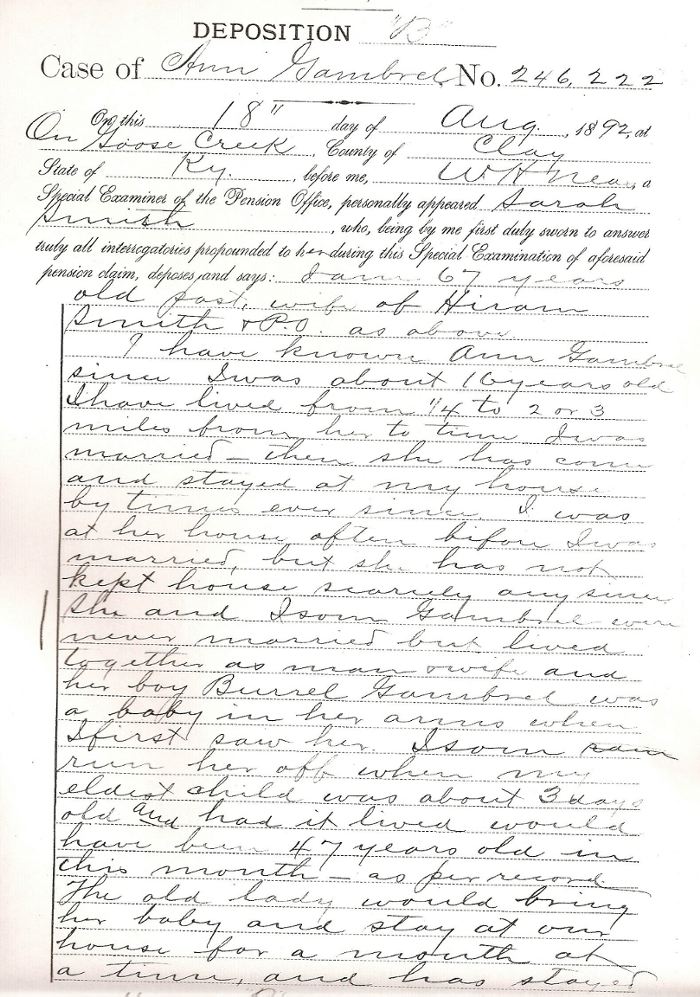 DEPOSITION "B"
Case of Ann Gambrel, No. 246,222
On this 18" day of Aug., 1892, at
On Goose Creek, County of Clay
State of Ky., before me, W H Neal, a
Special Examiner of the Pension Office, personally appeared Sarah
Smith, who, being by me first duly sworn to answer
truly all interrogatories propounded to her during this Special Examination of aforesaid
pension claim, deposes and says: I am 67 years
old past, wife of Hiram
Smith & P.O. as above
I have known Ann Gambrel
since I was about 16 years old
I have lived from 1/4 to 2 or 3
miles from her to time I was
married – then she has come
and stayed at my house
by times ever since. I was
at her house often before I was
married, but she has not
kept house scarcely any since
She and Isom Gambrel were
never married but lived
together as man & wife and
her boy Burrel Gambrel was
a baby in her arms when
I first saw her. Isom
run her off when my
eldest child was about 3 days
old and had it lived would
have been 47 years old in
this month – as per record.
The old lady would bring
her baby and stay at our
house for a month at
a time, and has stayed